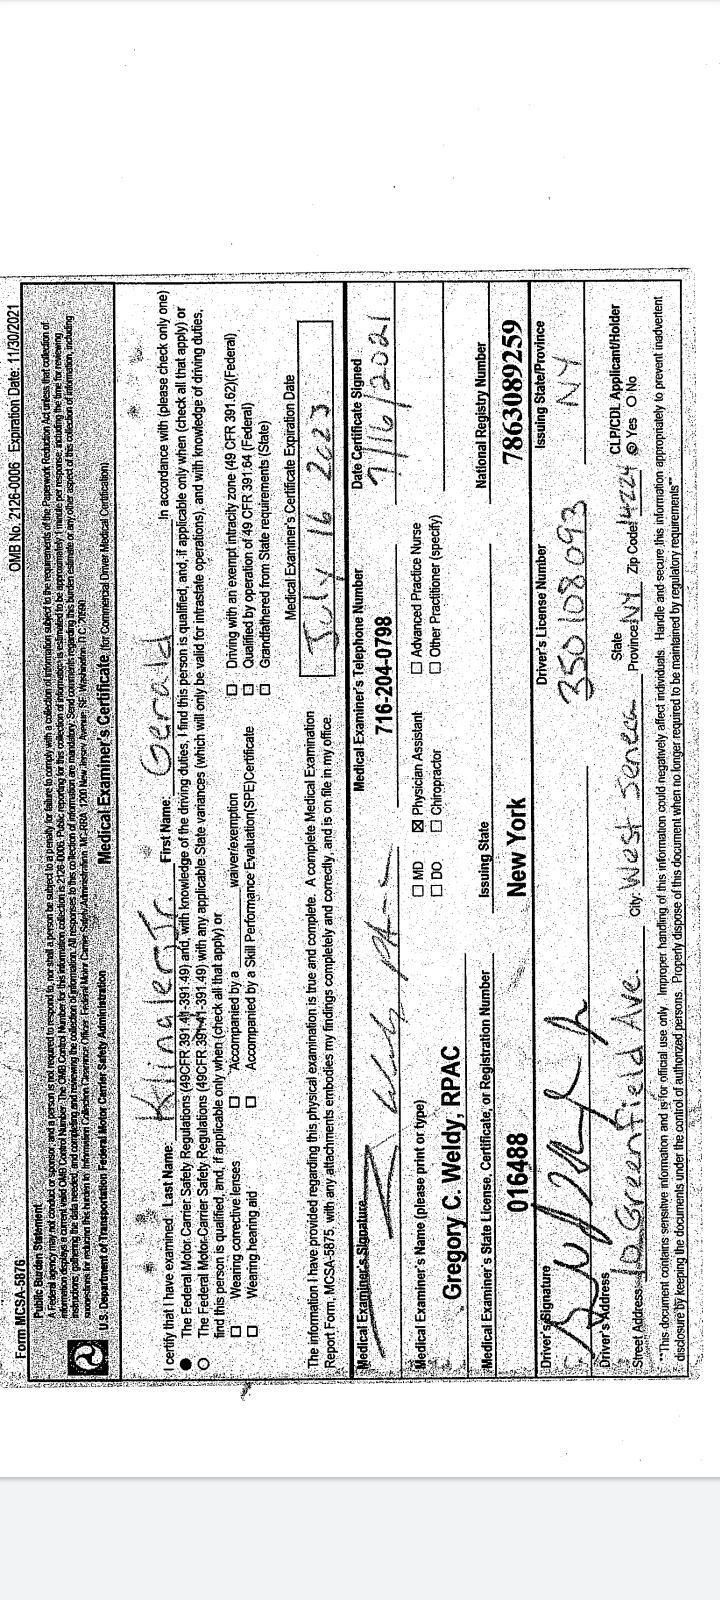 Form MCSA-5876 OMB No. 2126-0006 Expiration Date: 11/30/2021
Public Burden Statement
A Federal agency may not conduct or sponsor, and a person is not required to respond to, nor shall a person be subject to a penalty for failure to comply with a collection of information subject to the requirements of the Paperwork Reduction Act unless that collection of
information displays a current valid OMB Control Number. The OMB Control Number for this information collection is 2126-0006. Public reporting for this collection of information is estimated to be approximately 1 minute per response, including the time for reviewing
instructions, gathering the data needed, and completing and reviewing the collection of information. All responses to this collection of information are mandatory. Send comments regarding this burden estimate or any other aspect of this collection of information, including
suggestions for reducing this burden to: Information Collection Clearance Officer, Federal Motor Carrier Safety Administration, MC-RRA, 1200 New Jersey Avenue, SE, Washington, D.C. 20590.
U.S. Department of Transportation Federal Motor Carrier Safety Administration Medical Examiner's Certificate (for Commercial Driver Medical Certification)
I certify that I have examined Last Name: Klingler Jr. First Name: Gerald In accordance with (please check only one)
The Federal Motor Carrier Safety Regulations (49CFR 391.41-391.49) and, with knowledge of the driving duties, I find this person is qualified, and, if applicable only when (check all that apply) or
The Federal Motor Carrier Safety Regulations (49CFR 391.41-391.49) with any applicable State variances (which will only be valid for intrastate operations), and with knowledge of driving duties,
find this person is qualified, and, if applicable only when (check all that apply) or
Wearing corrective lenses Accompanied by a waiver/exemption Driving with an exempt intracity zone (49 CFR 391.62)(Federal)
Wearing hearing aid Accompanied by a Skill Performance Evaluation(SPE)Certificate Qualified by operation of 49 CFR 391.64 (Federal)
Grandfathered from State requirements (State)
Medical Examiner's Certificate Expiration Date
The information I have provided regarding this physical examination is true and complete. A complete Medical Examination
Report Form, MCSA-5875, with any attachments embodies my findings completely and correctly, and is on file in my office.
July 16 2023
Medical Examiner's Signature Medical Examiner's Telephone Number Date Certificate Signed
716-204-0798 7/16/2021
Medical Examiner's Name (please print or type) MD Physician Assistant Advanced Practice Nurse
Gregory C. Weldy, RPAC DO Chiropractor Other Practitioner (specify)
Medical Examiner's State License, Certificate, or Registration Number Issuing State National Registry Number
016488 New York 7863089259
Driver's Signature Driver's License Number Issuing State/Province
350108093 NY
Driver's Address
Street Address: 10 Greenfield Ave. City: West Seneca State Province: NY Zip Code: 14224 CLP/CDL Applicant/Holder Yes No
**This document contains sensitive information and is for official use only. Improper handling of this information could negatively affect individuals. Handle and secure this information appropriately to prevent inadvertent
disclosure by keeping the documents under the control of authorized persons. Properly dispose of this document when no longer required to be maintained by regulatory requirements**